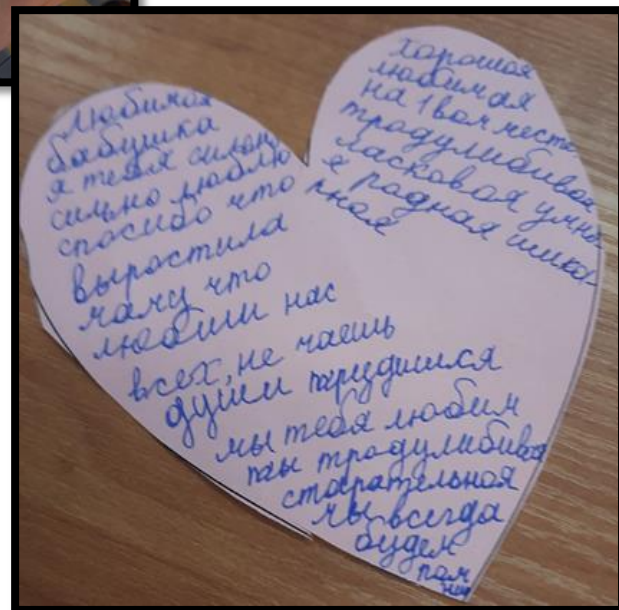 Любимая
бабушка
я тебя сильно
сильно люблю
спосибо что
выростила
маму что
любиш нас
всех, не чаешь
души
мы тебя любим
ты традулибивая
старательная
мы всегда
будем
пом
ним
хорошая
любимая
на 1 вом месте
традулибивая
ласковая умна
я радная шика-
рная